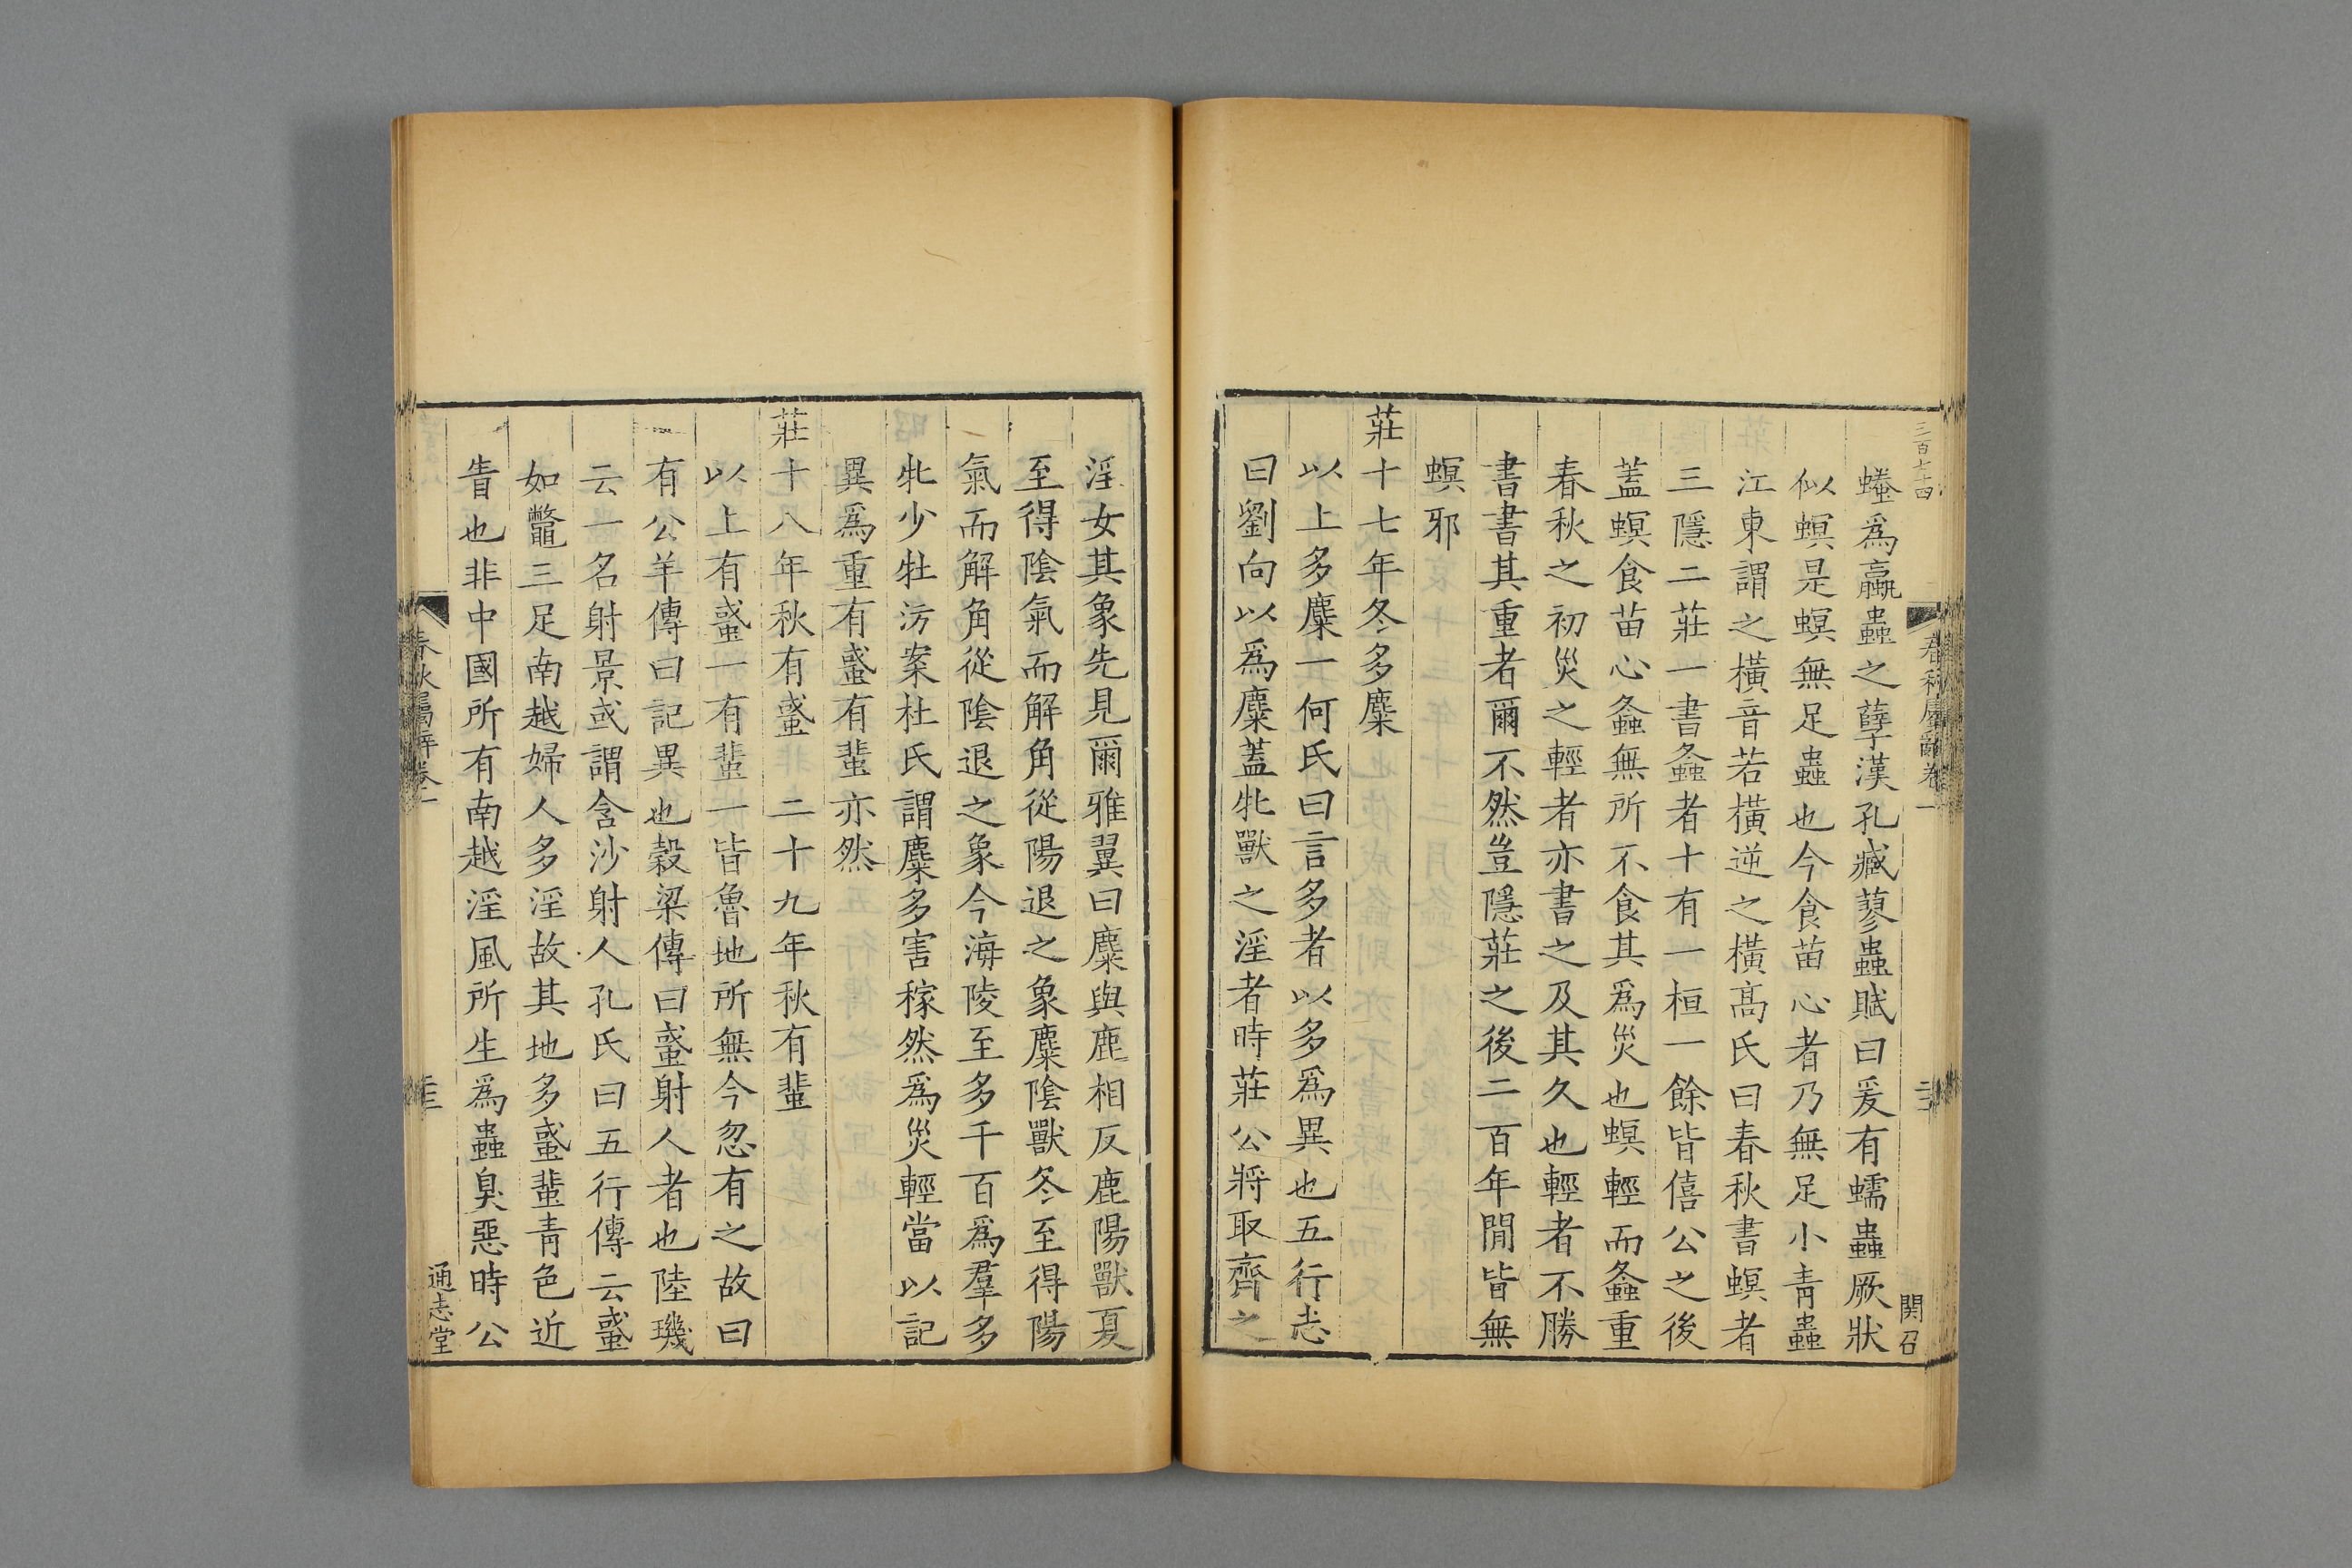 三百七十四
春秋屬辭卷一
関召
蜷爲蠃蟲之孽漢孔臧蓼蟲賦曰爰有蠕蟲厥狀
似螟是螟無足蟲也今食苗心者乃無足小青蟲
江東謂之橫音若橫逆之橫髙氏曰春秋書螟者
三隱二莊一書螽者十有一桓一餘皆僖公之後
蓋螟食苗心螽無所不食其爲災也螟輕而螽重
春秋之初災之輕者亦書之及其久也輕者不勝
書書其重者爾不然豈隱莊之後二百年閒皆無
螟邪
莊十七年冬多麋
以上多麋一何氏曰言多者以多爲異也五行志
曰劉向以爲麋蓋牝獸之淫者時莊公將取齊之
淫女其象先見爾雅翼曰麋與鹿相反鹿陽獸夏
至得陰氣而解角從陽退之象麋陰獸冬至得陽
氣而解角從陰退之象今海陵至多千百爲羣多
牝少牡汸案杜氏謂麋多害稼然爲災輕當以記
異爲重有蜮有蜚亦然
莊十八年秋有蜮 二十九年秋有蜚
以上有蜮一有蜚一皆魯地所無今忽有之故曰
有公羊傳曰記異也穀梁傳曰蜮射人者也陸璣
云一名射景或謂含沙射人孔氏曰五行傳云蜮
如鼈三足南越婦人多淫故其地多蜮蜚青色近
眚也非中國所有南越淫風所生爲蟲臭惡時公
春秋屬辭卷一
通志堂